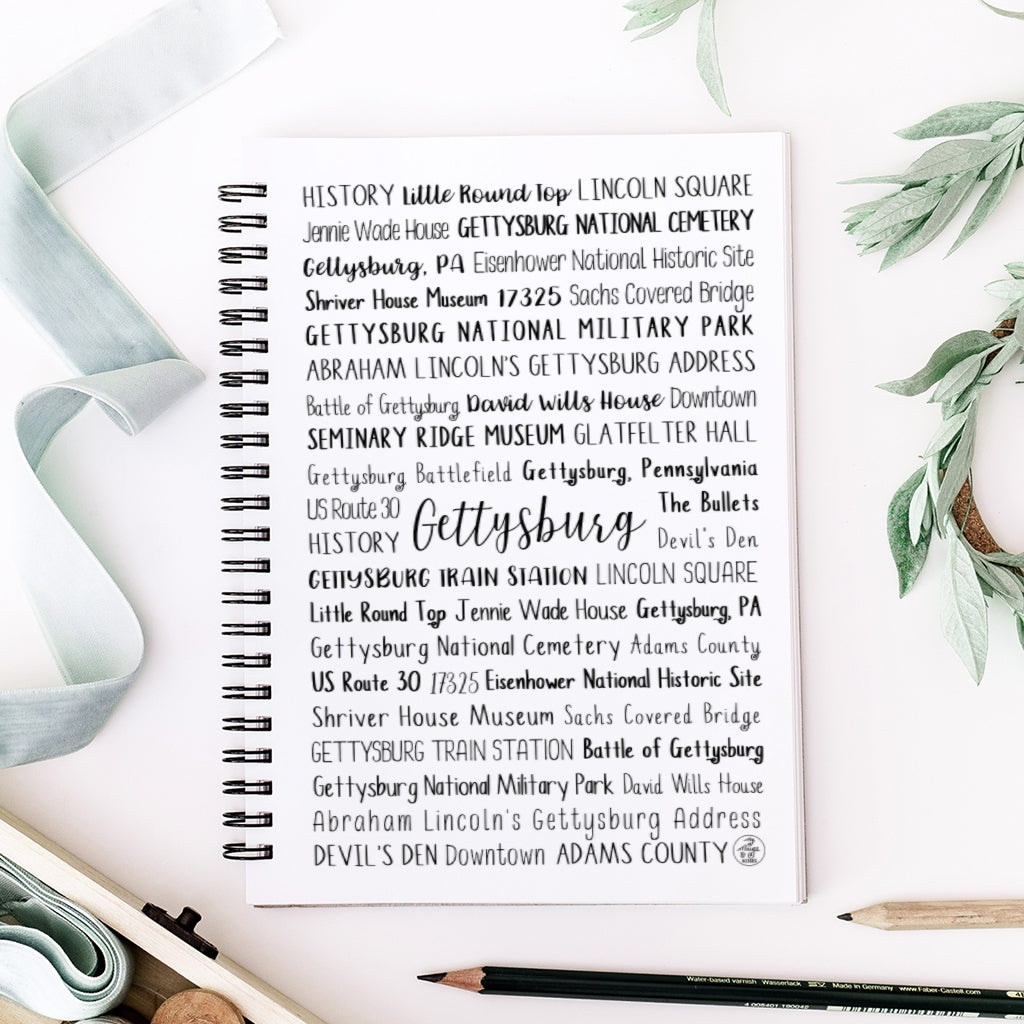 HISTORY Little Round Top LINCOLN SQUARE
Jennie Wade House GETTYSBURG NATIONAL CEMETERY
Gettysburg, PA Eisenhower National Historic Site
Shriver House Museum 17325 Sachs Covered Bridge
GETTYSBURG NATIONAL MILITARY PARK
ABRAHAM LINCOLN'S GETTYSBURG ADDRESS
Battle of Gettysburg David Wills House Downtown
SEMINARY RIDGE MUSEUM GLATFELTER HALL
Gettysburg Battlefield Gettysburg, Pennsylvania
US Route 30
The Bullets
Gettysburg
HISTORY
Devil's Den
GETTYSBURG TRAIN STATION LINCOLN SQUARE
Little Round Top Jennie Wade House Gettysburg, PA
Gettysburg National Cemetery Adams County
US Route 30 17325 Eisenhower National Historic Site
Shriver House Museum Sachs Covered Bridge
GETTYSBURG TRAIN STATION Battle of Gettysburg
Gettysburg National Military Park David Wills House
Abraham Lincoln's Gettysburg Address
DEVIL'S DEN Downtown ADAMS COUNTY
Water-based varnish Wasserlack Made in Germany www.Faber-Castell.com
4 005401 190042